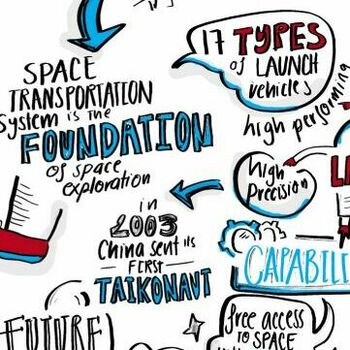 SPACE
TRANSPORTATION
System is the
FOUNDATION
of space
exploration
in
2003
China sent its
FIRST
TAIKONAUT
FUTURE
17 TYPES
of LAUNCH
vehicles
high performing
high
Precision
CAPABILI
free access
to SPACE